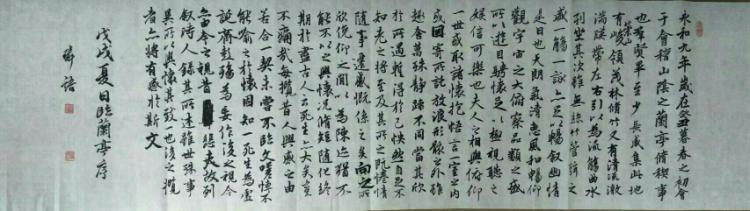 永和九年歲在癸丑暮春之初會
于會稽山陰之蘭亭脩稧事
也羣賢畢至少長咸集此地
有崇山峻領茂林脩竹又有清流激
湍暎帶左右引以為流觴曲水
列坐其次雖無絲竹管弦之
盛一觴一詠亦足以暢敘幽情
是日也天朗氣清惠風和暢仰
觀宇宙之大俯察品類之盛
所以遊目騁懷足以極視聽之
娛信可樂也夫人之相與俯仰
一世或取諸懷抱悟言一室之內
或因寄所託放浪形骸之外雖
趣舍萬殊靜躁不同當其欣
於所遇暫得於己怏然自足不
知老之將至及其所之既惓情
隨事遷感慨係之矣向之所
欣俛仰之閒以為陳迹猶不
能不以之興懷況脩短隨化終
期於盡古人云死生亦大矣豈
不痛哉每攬昔人興感之由
若合一契未嘗不臨文嗟悼不
能喻之於懷固知一死生為虛
誕齊彭殤為妄作後之視今
亦由今之視昔悲夫故列
敘時人錄其所述雖世殊事
異所以興懷其致一也後之攬
者亦將有感於斯文
戊戌夏日臨蘭亭序